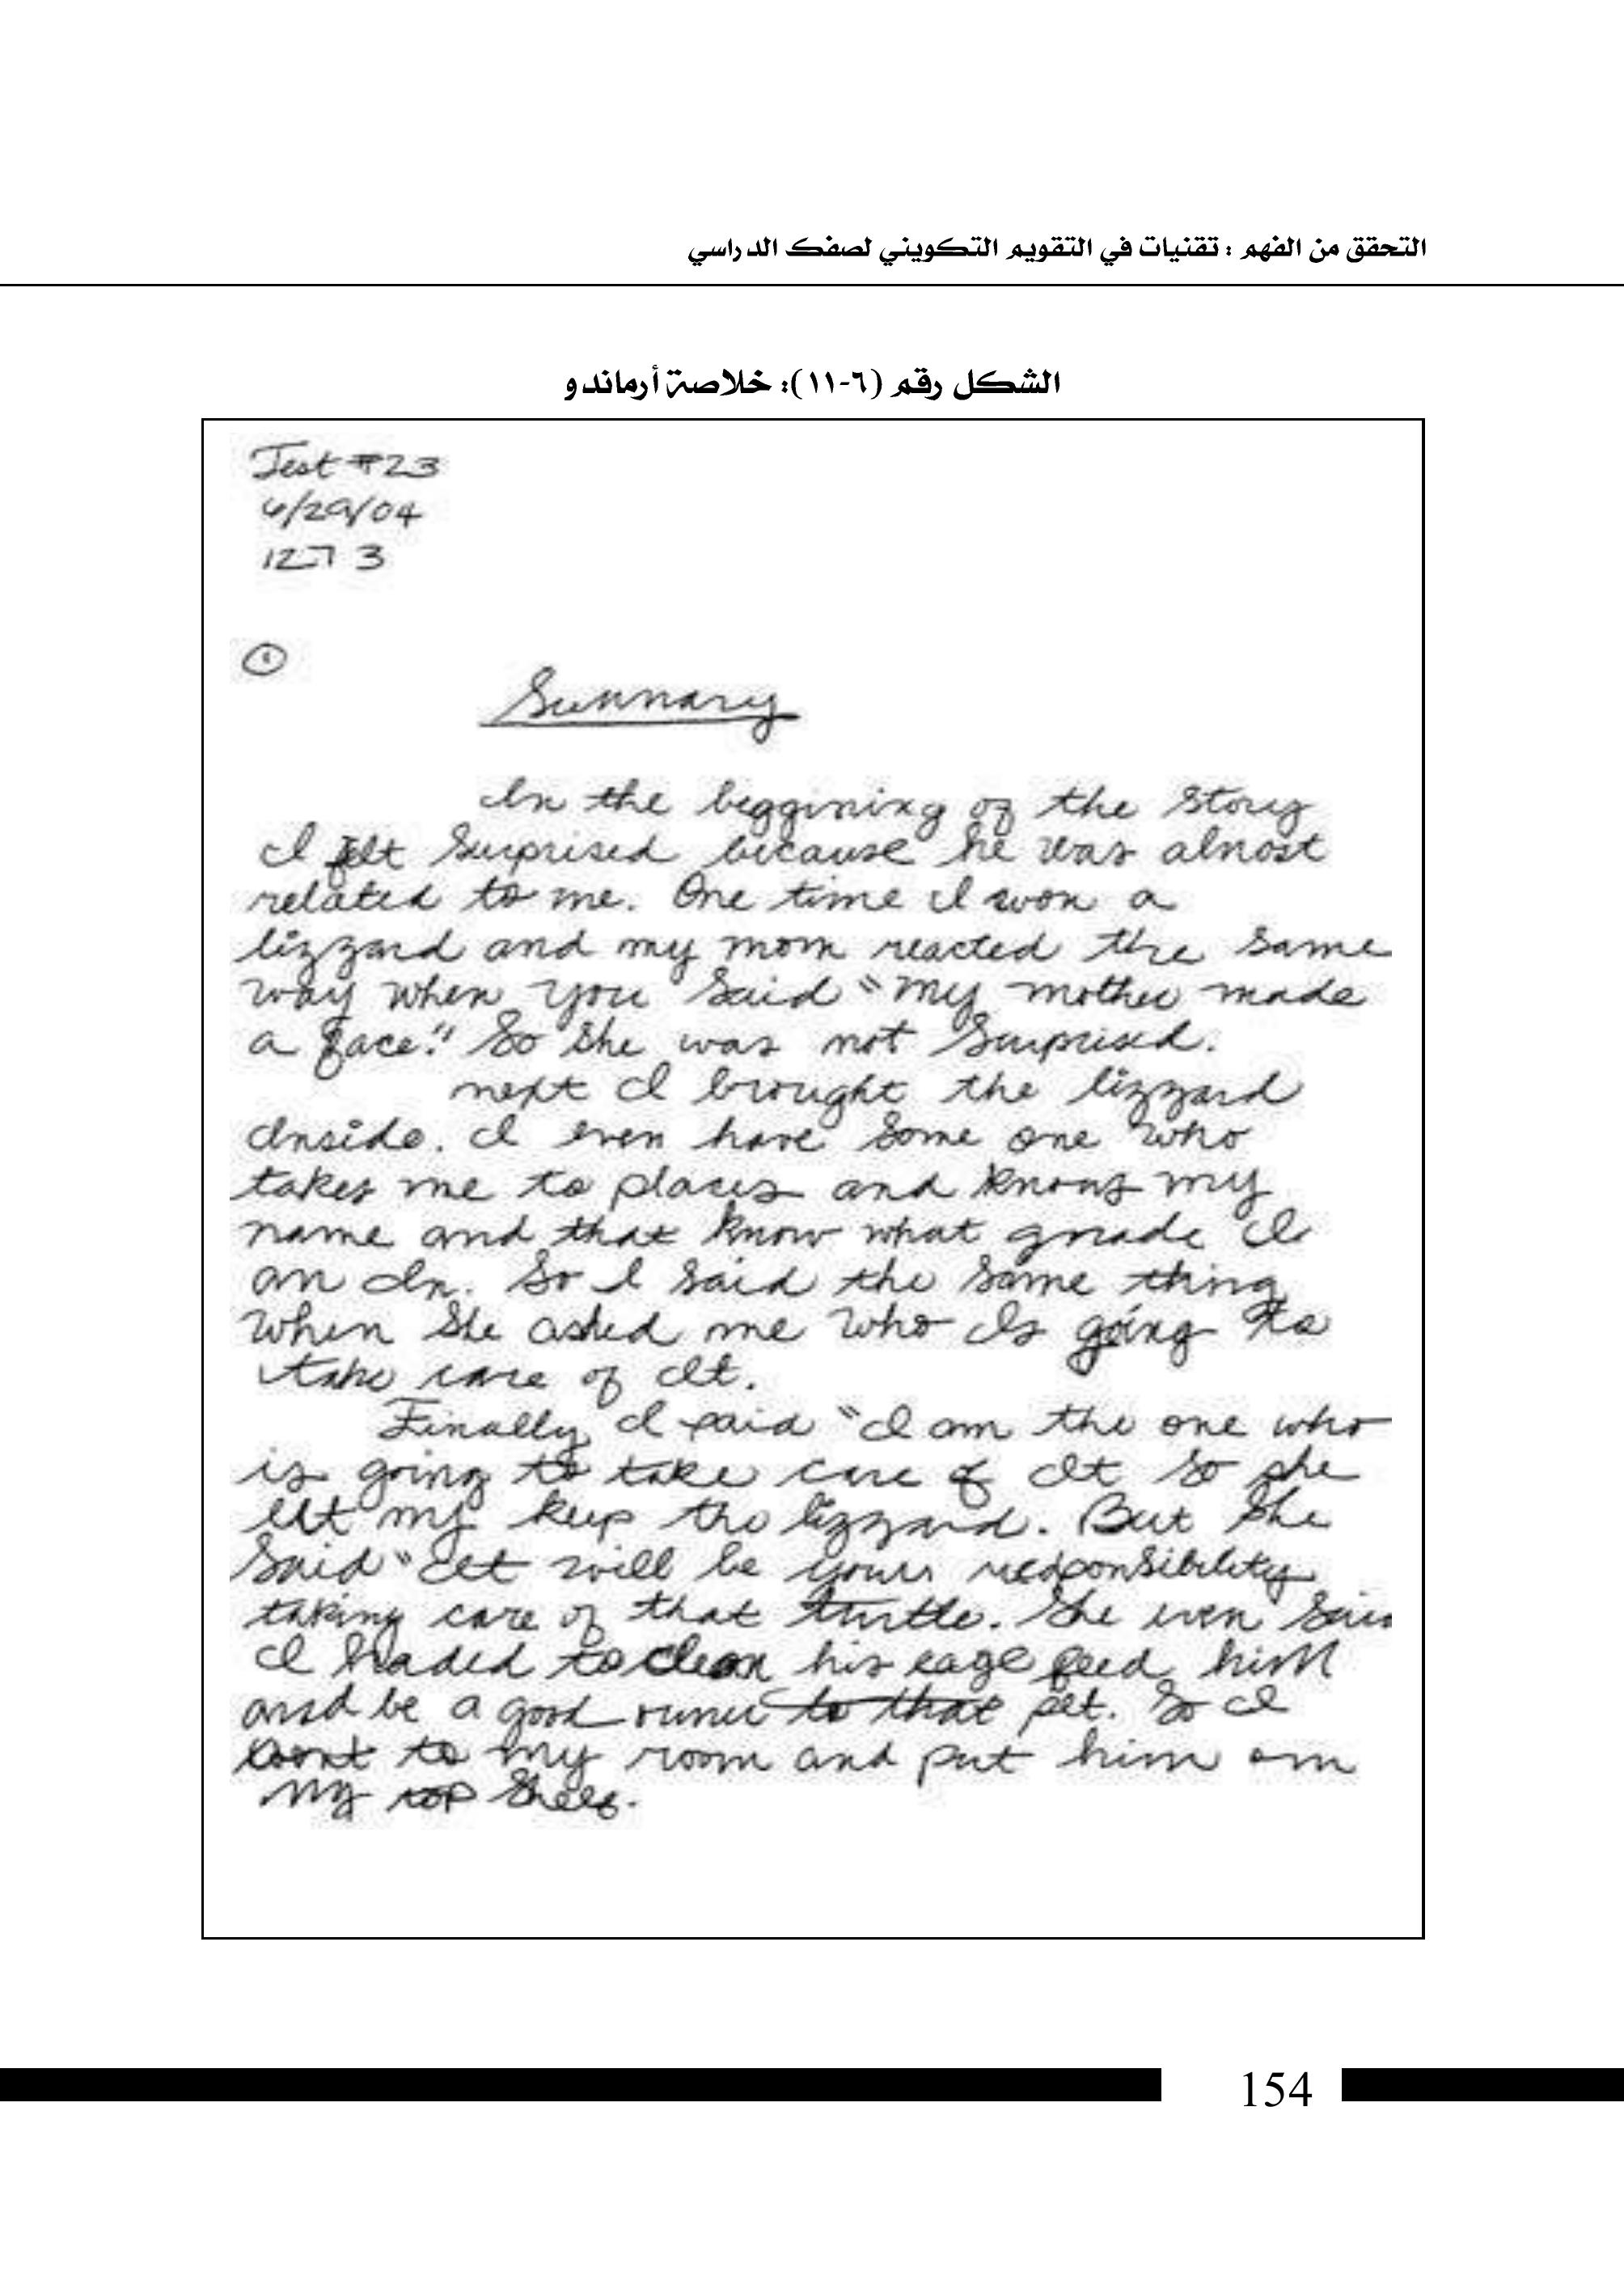 التحقق من الفهم : تقنيات في التقويم التكويني لصفك الدراسي
الشكل رقم (٦-١١): خلاصة أرماندو
Test #23
6/29/04
3
Summary
In the beggining of the story
I felt Surprised because he was almost
related to me. One time I won a
lizzard and my mom reacted the Same
way when you Said "My mother made
a face." So She was not Surprised.
next I brought the lizzard
Inside. I even have Some one who
takes me to places and knows my
name and that know what grade I
am In. So I Said the Same thing
When She asked me who Is going to
take care of It.
Finally I said "I am the one who
is going to take care of It So she
let my keep the lizzard. But She
Said "It will be your responsibility
taking care of that turtle. She even Said
I haded to clean his cage feed him
and be a good owner to that pet. So I
went to my room and put him om
my top Shelf.
154